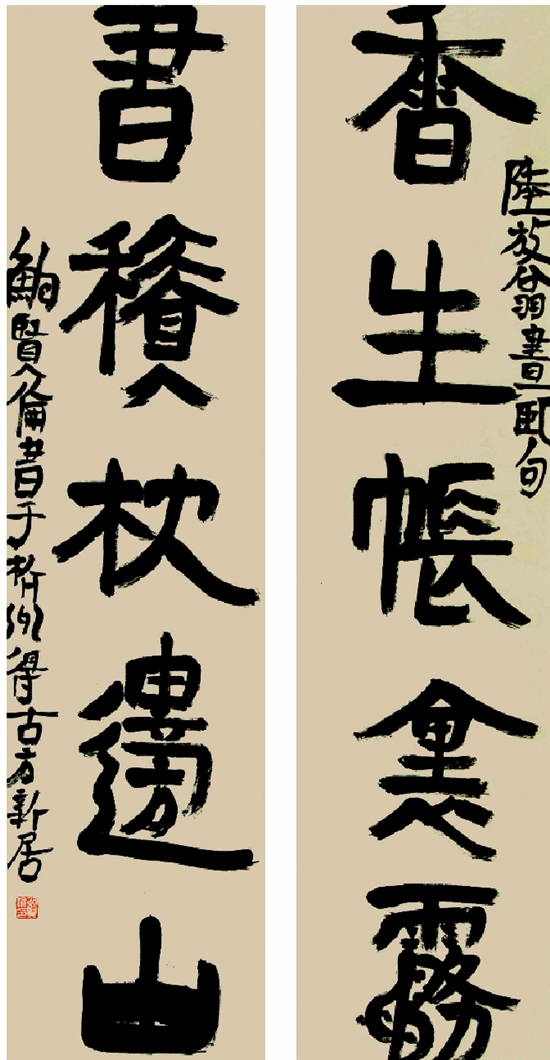 陸放翁晝臥句
香生帳裏霧
書積枕邊山
鮑賢倫書于杭州得古方新居